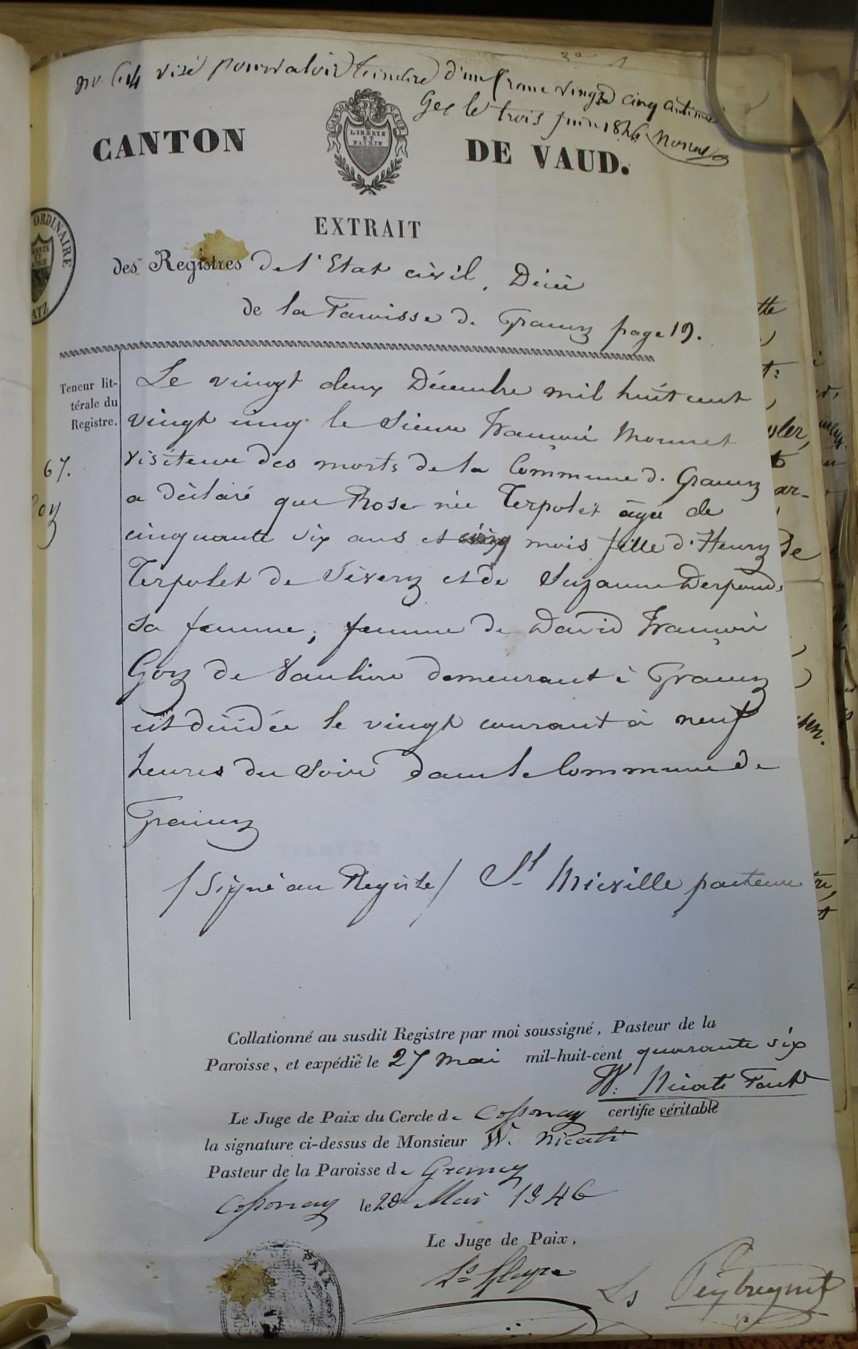 visé pour valoir timbre d'un franc vingt cinq centimes
Gex le trois juin 1846
CANTON DE VAUD.
LIBERTÉ
ET
PATRIE
EXTRAIT
ORDINAIRE
des Registres de l'Etat civil, Décès
de la Paroisse de Grancy page 19.
Teneur lit-
térale du
Registre.
67.
Le vingt deux Décembre mil huit cent
vingt cinq le Sieur François Monnet
visiteur des morts de la Commune de Grancy
a déclaré que Rose née Terpolet âgée de
cinquante six ans et cinq mois fille d'Henry de
Terpolet de Sévery et de Suzanne
sa femme, femme de David François
Goy de Vaulion demeurant à Grancy
est décédée le vingt courant à neuf
heures du soir dans le Commune de
Grancy
/ Signé au Registre / St Miéville pasteur
Collationné au susdit Registre par moi soussigné, Pasteur de la
Paroisse, et expédié le 27 mai mil-huit-cent quarante six
W. Nicati Past
Le Juge de Paix du Cercle de Cossonay certifie véritable
la signature ci-dessus de Monsieur W. Nicati
Pasteur de la Paroisse de Grancy
Cossonay le 28 Mai 1846
Le Juge de Paix,
PAIX